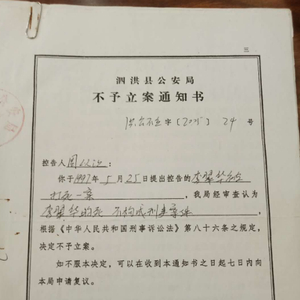 泗洪县公安局
不予立案通知书
字〔20〕24号
控告人
你于1997年5月25日提出控告的李
打死一案，我局经审查认为
李 不构成刑事案件，
根据《中华人民共和国刑事诉讼法》第八十六条之规定，
决定不予立案。
如不服本决定，可以在收到本通知书之日起七日内向
本局申请复议。